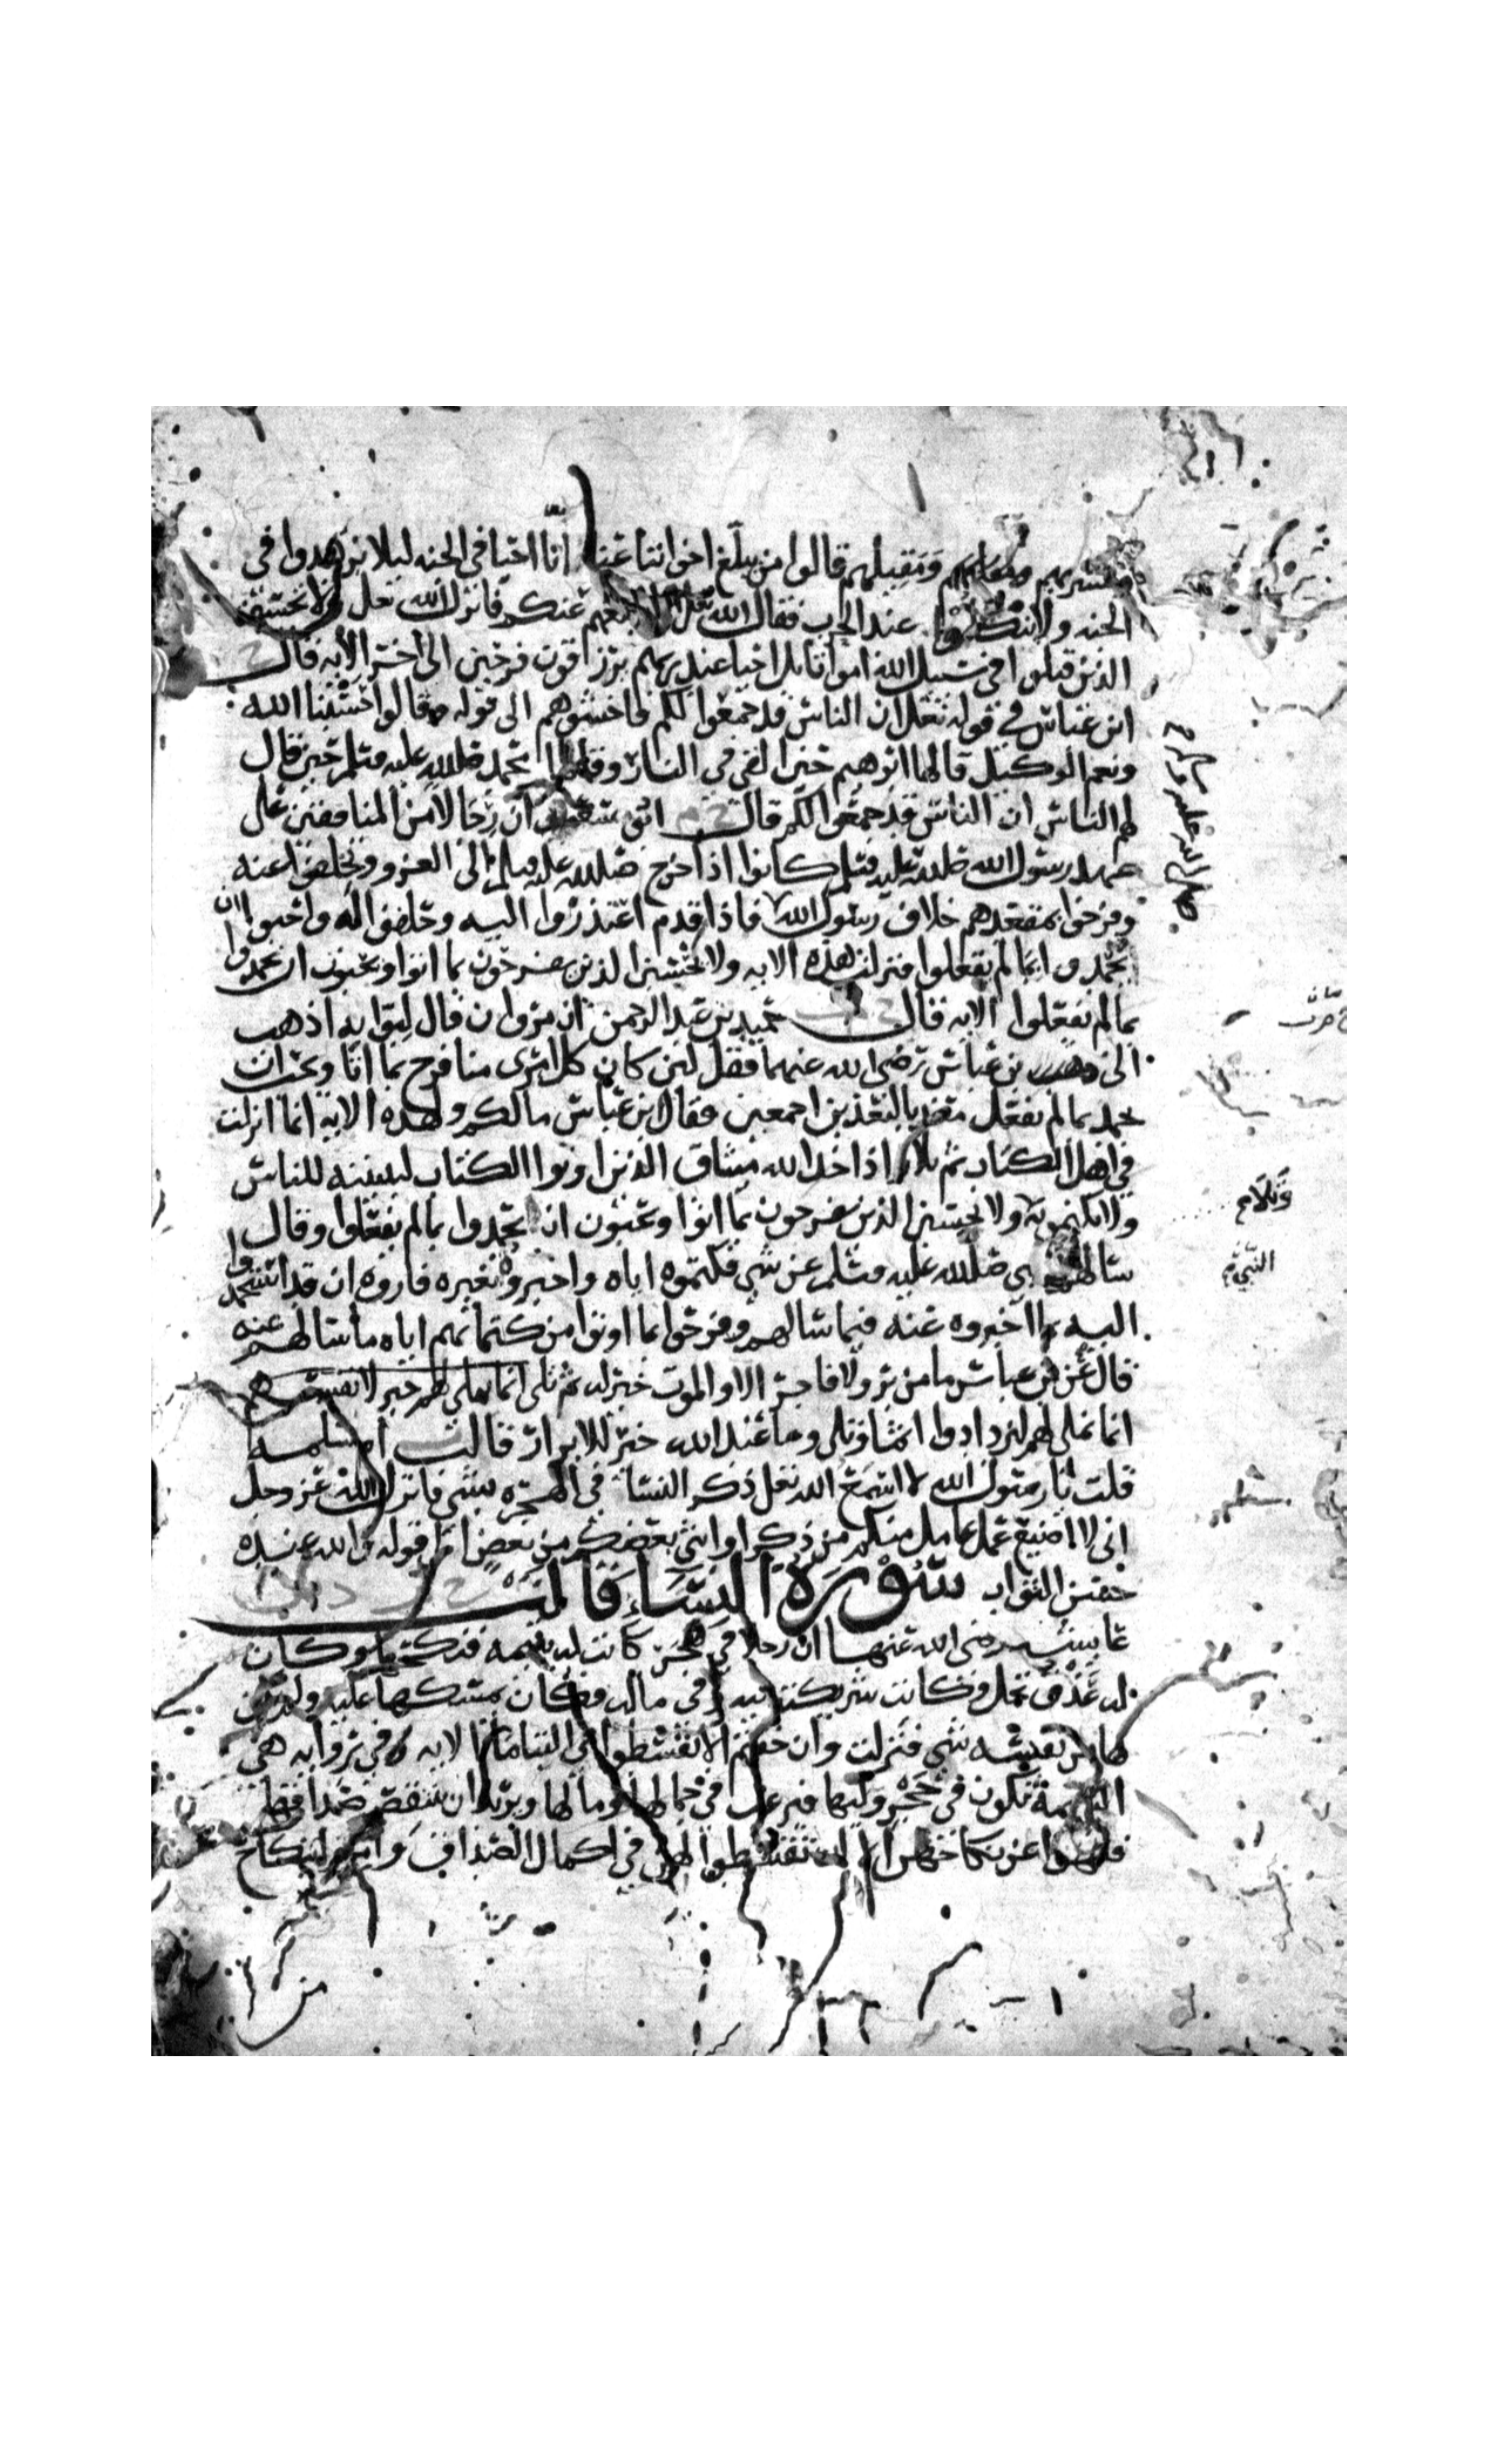 ومشربهم ومطعمهم ومقيلهم قالوا من يبلغ اخواننا عنا انا احيا في الجنه ليلا يزهدوا في
الجنه ولا ينكلوا عند الحرب فقال الله تعالى انا ابلغهم عنكم فانزل الله تعلى ولا تحسبن
الذين قتلوا في سبيل الله امواتا بل احيا عند ربهم يرزقون فرحين الى اخر الايه قال
ابن عباس في قوله تعلى ان الناس قد جمعوا لكم فاخشوهم الى قوله وقالوا حسبنا الله
ونعم الوكيل قالها ابرهيم حين القي في النار وقالها محمد صلى الله عليه وسلم حين قال
لهم الناس ان الناس قد جمعوا لكم قال ابو سعيد ان رجالا من المنافقين على
عهد رسول الله صلى الله عليه وسلم كانوا اذا خرج صلى الله عليه وسلم الى الغزو وتخلفوا عنه
وفرحوا بمقعدهم خلاف رسول الله فاذا قدم اعتذروا اليه وحلفوا له واحبوا ان
يحمدوا بما لم يفعلوا فنزلت هذه الايه ولا تحسبن الذين يفرحون بما اتوا ويحبون ان يحمدوا
بما لم يفعلوا الايه قال حميد بن عبد الرحمن ان مروان قال لبوابه اذهب
الى بن عباس رضي الله عنهما فقل لين كان كل امرى منا فرح بما اتا وحب ان
يحمد بما لم يفعل معذبا لنعذبن اجمعين فقال ابن عباس مالكم ولهذه الايه انما انزلت
في اهل الكتاب ثم تلا واذ اخذ الله ميثاق الذين اوتوا الكتاب ليبيننه للناس
ولا يكتمونه ولا تحسبن الذين يفرحون بما اتوا ويحبون ان يحمدوا بما لم يفعلوا وقال
سالهم النبي صلى الله عليه وسلم عن شي فكتموه اياه واخبروه بغيره فاروه ان قد استحمدوا
اليه بما اخبروه عنه فيما سالهم وفرحوا بما اوتوا من كتمانهم اياه ما سالهم عنه
قال عن بن عباس ما من بر ولا فاجر الا والموت خير له ثم تلى انما نملي لهم خير لانفسهم
انما نملي لهم ليزدادوا اثما وتلى وما عند الله خير للابرار قالت ام سلمه
قلت يا رسول الله لا اسمع الله تعلى ذكر النسا في الهجره بشي فانزل الله عز وجل
اني لا اضيع عمل عامل منكم من ذكر او انثى بعضكم من بعض الى قوله والله عنده
حسن الثواب سورة النساء قالت
عايشه رضي الله عنها ان رجلا في حجر كانت له يتيمه فنكحها وكان
له عذق نخل وكانت شريكته فيه وفي ماله وكان يمسكها عليه ولم يكن
لها من نفسه شي فنزلت وان خفتم الا تقسطوا في اليتاما الايه وفي روايه هي
اليتيمة تكون في حجر وليها فيرغب في جمالها ومالها ويريد ان ينتقص صداقها
فنهوا عن نكاحهن الا ان تقسطوا لهن في اكمال الصداق وامروا بنكاح
وتلا م
النبي م